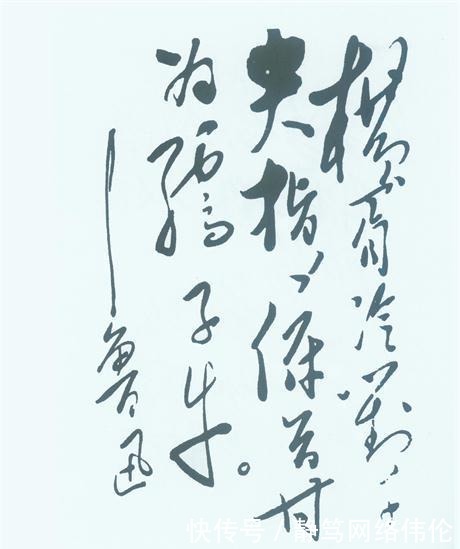 横眉冷對千
夫指、俯首甘
为孺子牛。
——鲁迅
快传号 / 静笃网络伟伦